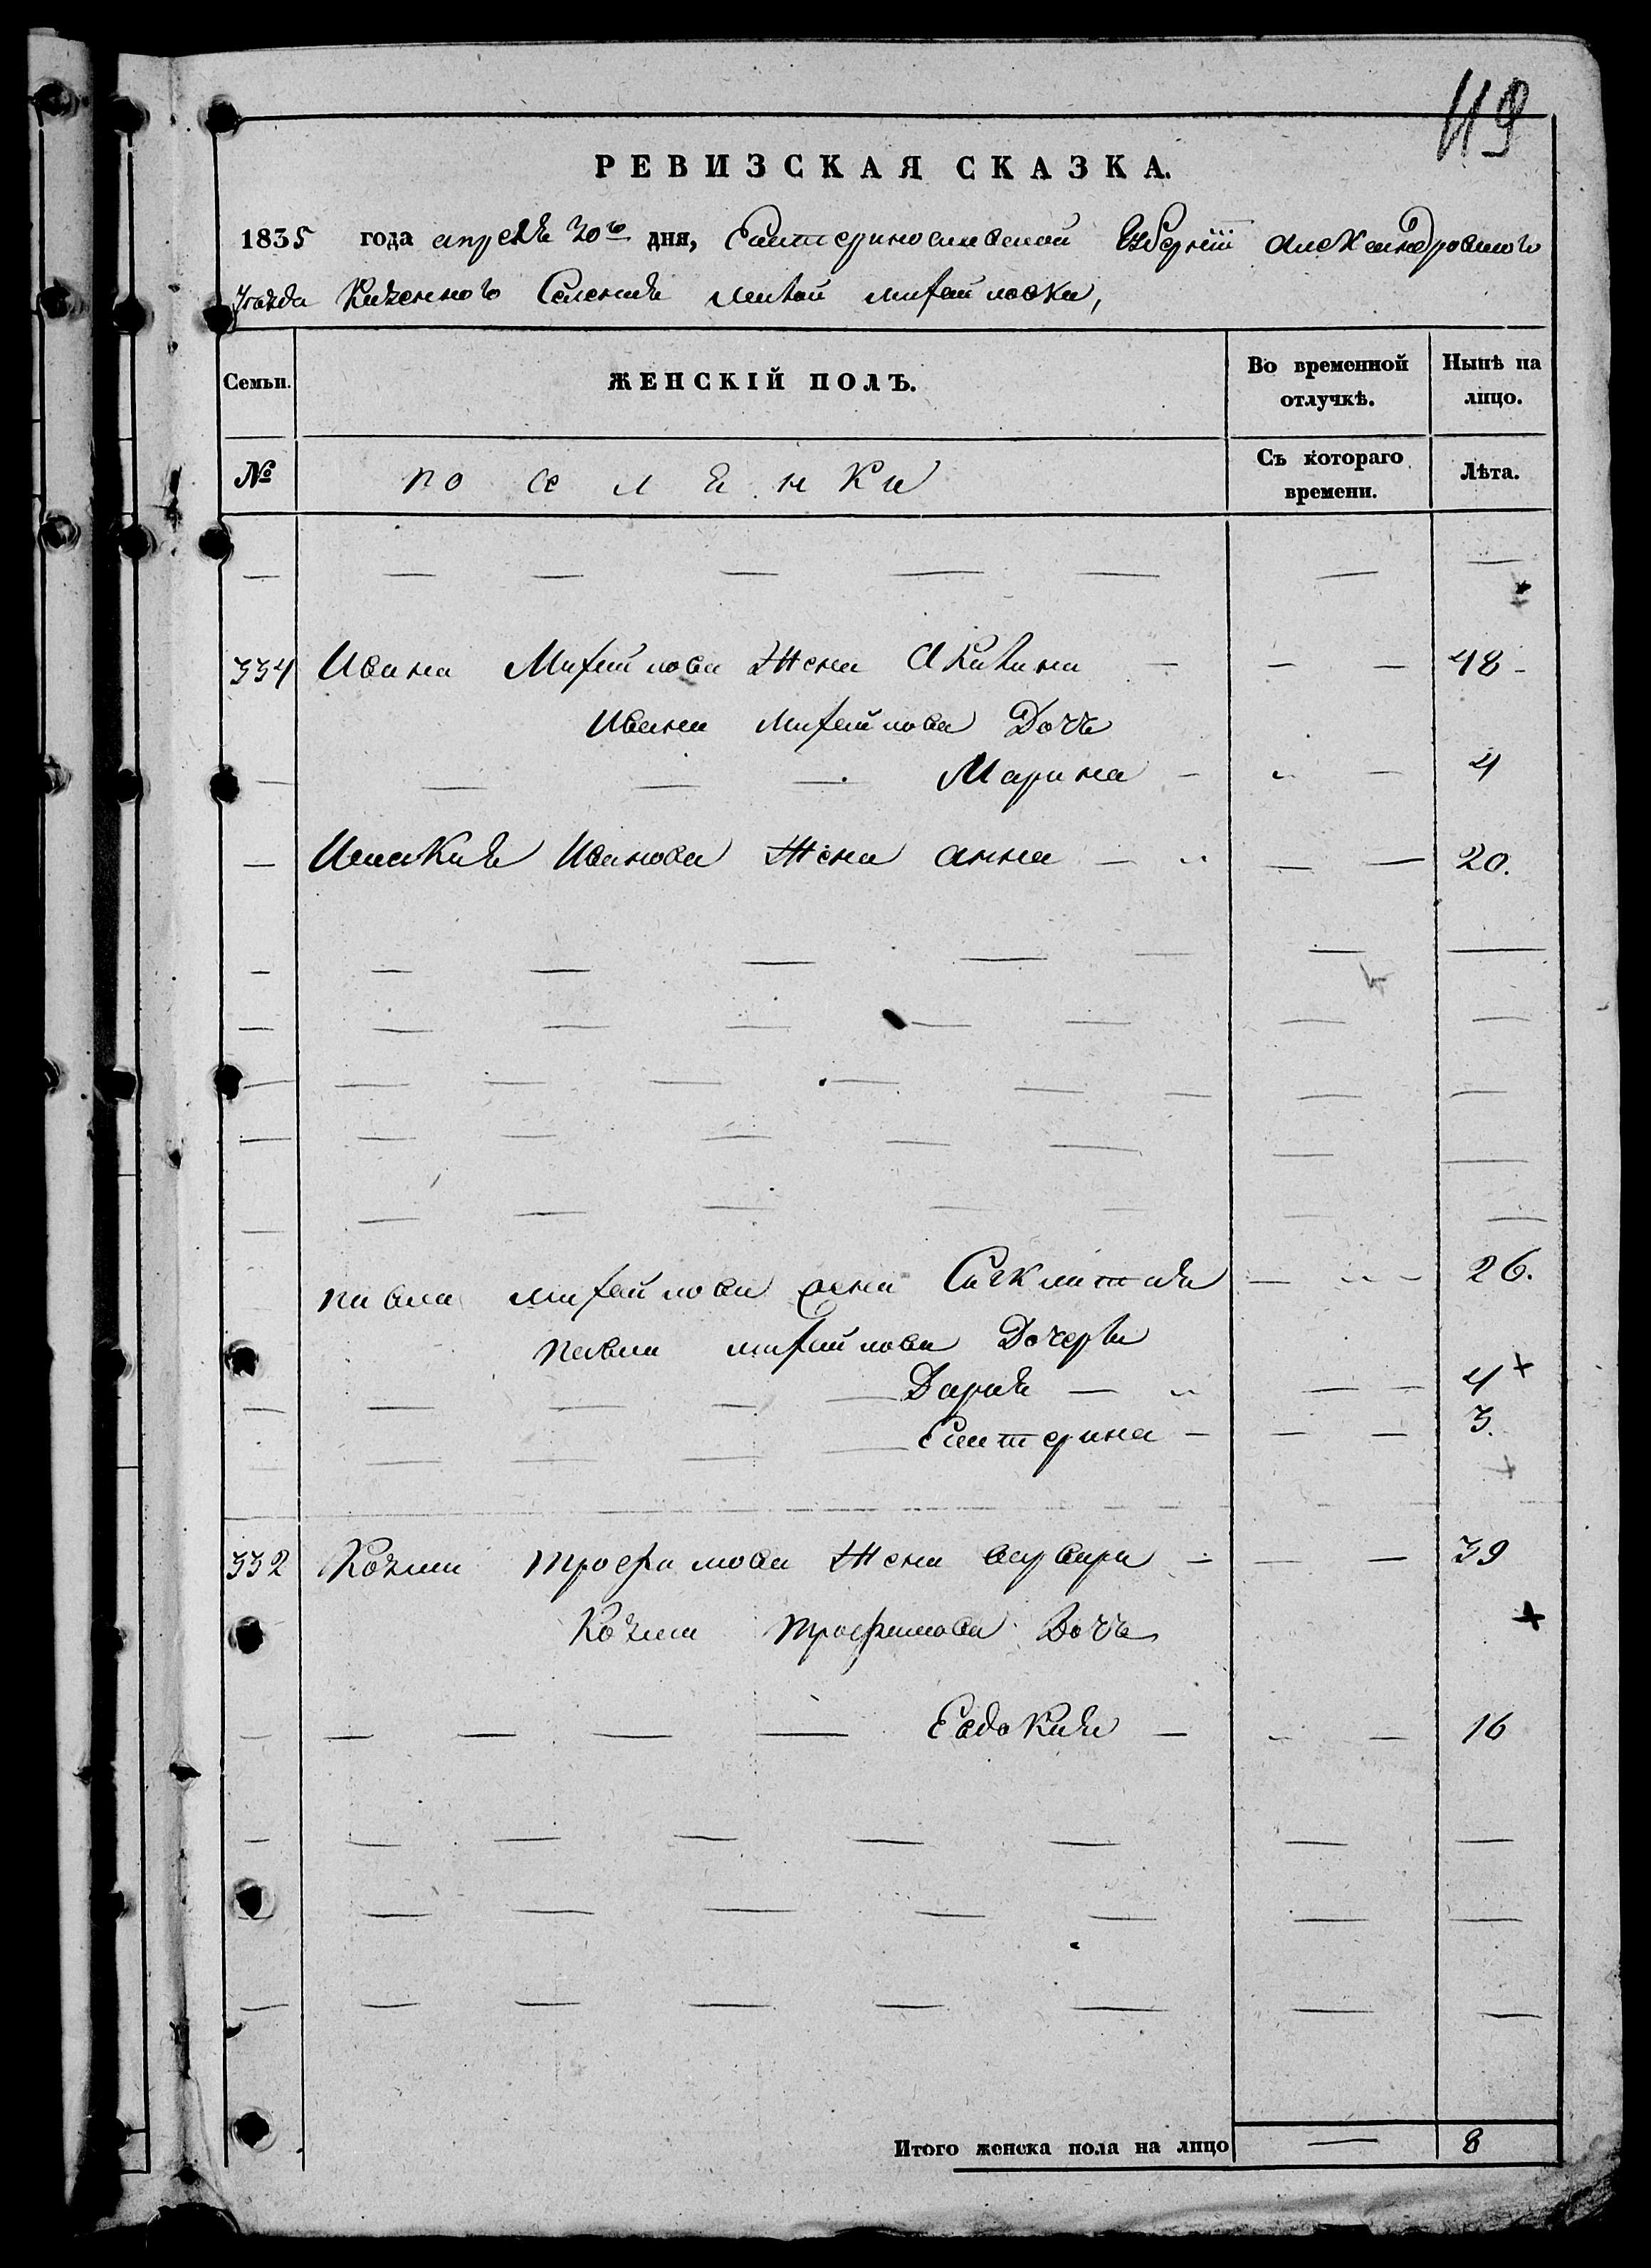 49
РЕВИЗСКАЯ СКАЗКА.
1835 года апреля 30го дня, Екатеринославской Губернiи Александровского
Уезда Казенного Селения Малой Михайловки,
Семьи. ЖЕНСКIЙ ПОЛЪ. Во временной отлучкѣ. Нынѣ на лицо.
№ поселенки Съ котораго времени. Лѣта.
— — — — — — — —
334 Ивана Михайлова Жена Акилина — — — 48 -
Ивана Михайлова Дочь
— — — — Марина — — 4
— Исакия Иванова Жена анна — — — 20.
павла михайлова жена — — 26.
павла михайлова Дочеря
— — — — Дария — — — 4 +
— — — — Екатерина — — — 3.
332 Козмы трофимова Жена варвара — — — 39
Козмы трофимова Дочь +
— — — — — Евдокия — — — 16
Итого женска пола на лицо — 8